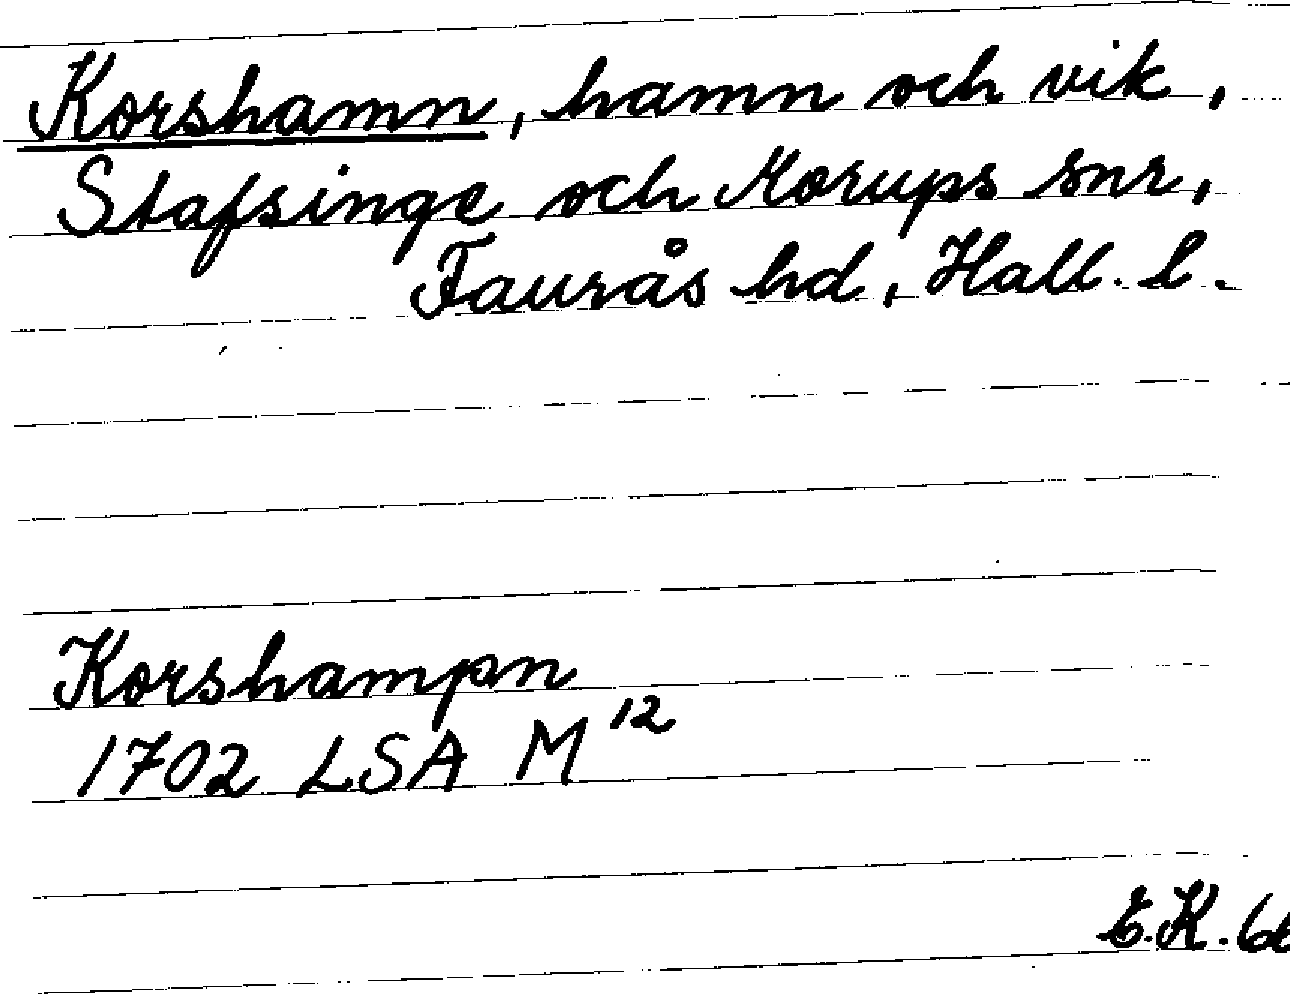 Korshamn, hamn och vik,
Stafsinge och Morups snr,
Faurås hd, Hall. l.
Korshampn
1702 LSA M¹²
E.K.